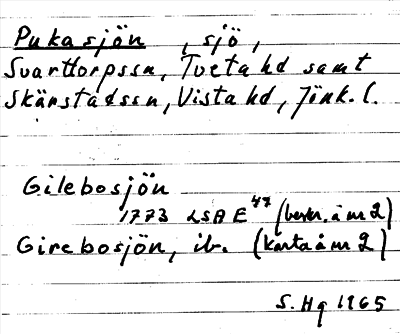 Pukasjön, sjö,
Svarttorpssn, Tveta hd samt
Skärstadssn, Vista hd, Jönk. l.
Gilebosjön
1773 LSA E 47 (beskr. å nr 2)
Girebosjön, ib. (karta å nr 2)
S. Hq 1965